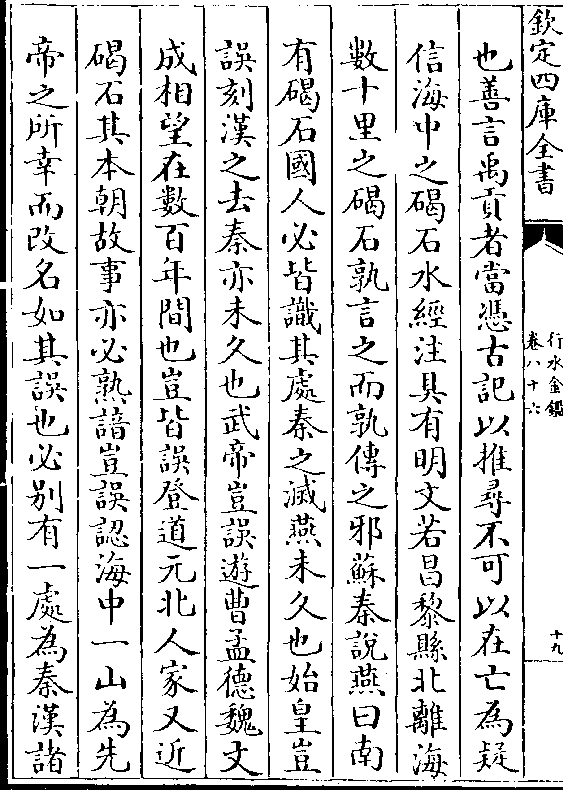 欽定四庫全書
行水金鑑
卷八十六
十九
也善言禹貢者當憑古記以推尋不可以在亡為疑
信海中之碣石水經注具有明文若昌黎縣北離海
數十里之碣石孰言之而孰傳之邪蘇秦說燕曰南
有碣石國人必皆識其處秦之滅燕未久也始皇豈
誤刻漢之去秦亦未久也武帝豈誤遊曹孟德魏文
成相望在數百年間也豈皆誤登道元北人家又近
碣石其本朝故事亦必熟諳豈誤認海中一山為先
帝之所幸而改名如其誤也必别有一處為秦漢諸